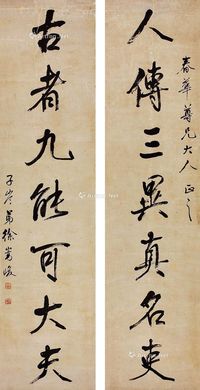 春華尊兄大人正之
人傳三異真名吏
古者九能可大夫
子岑弟徐嵩